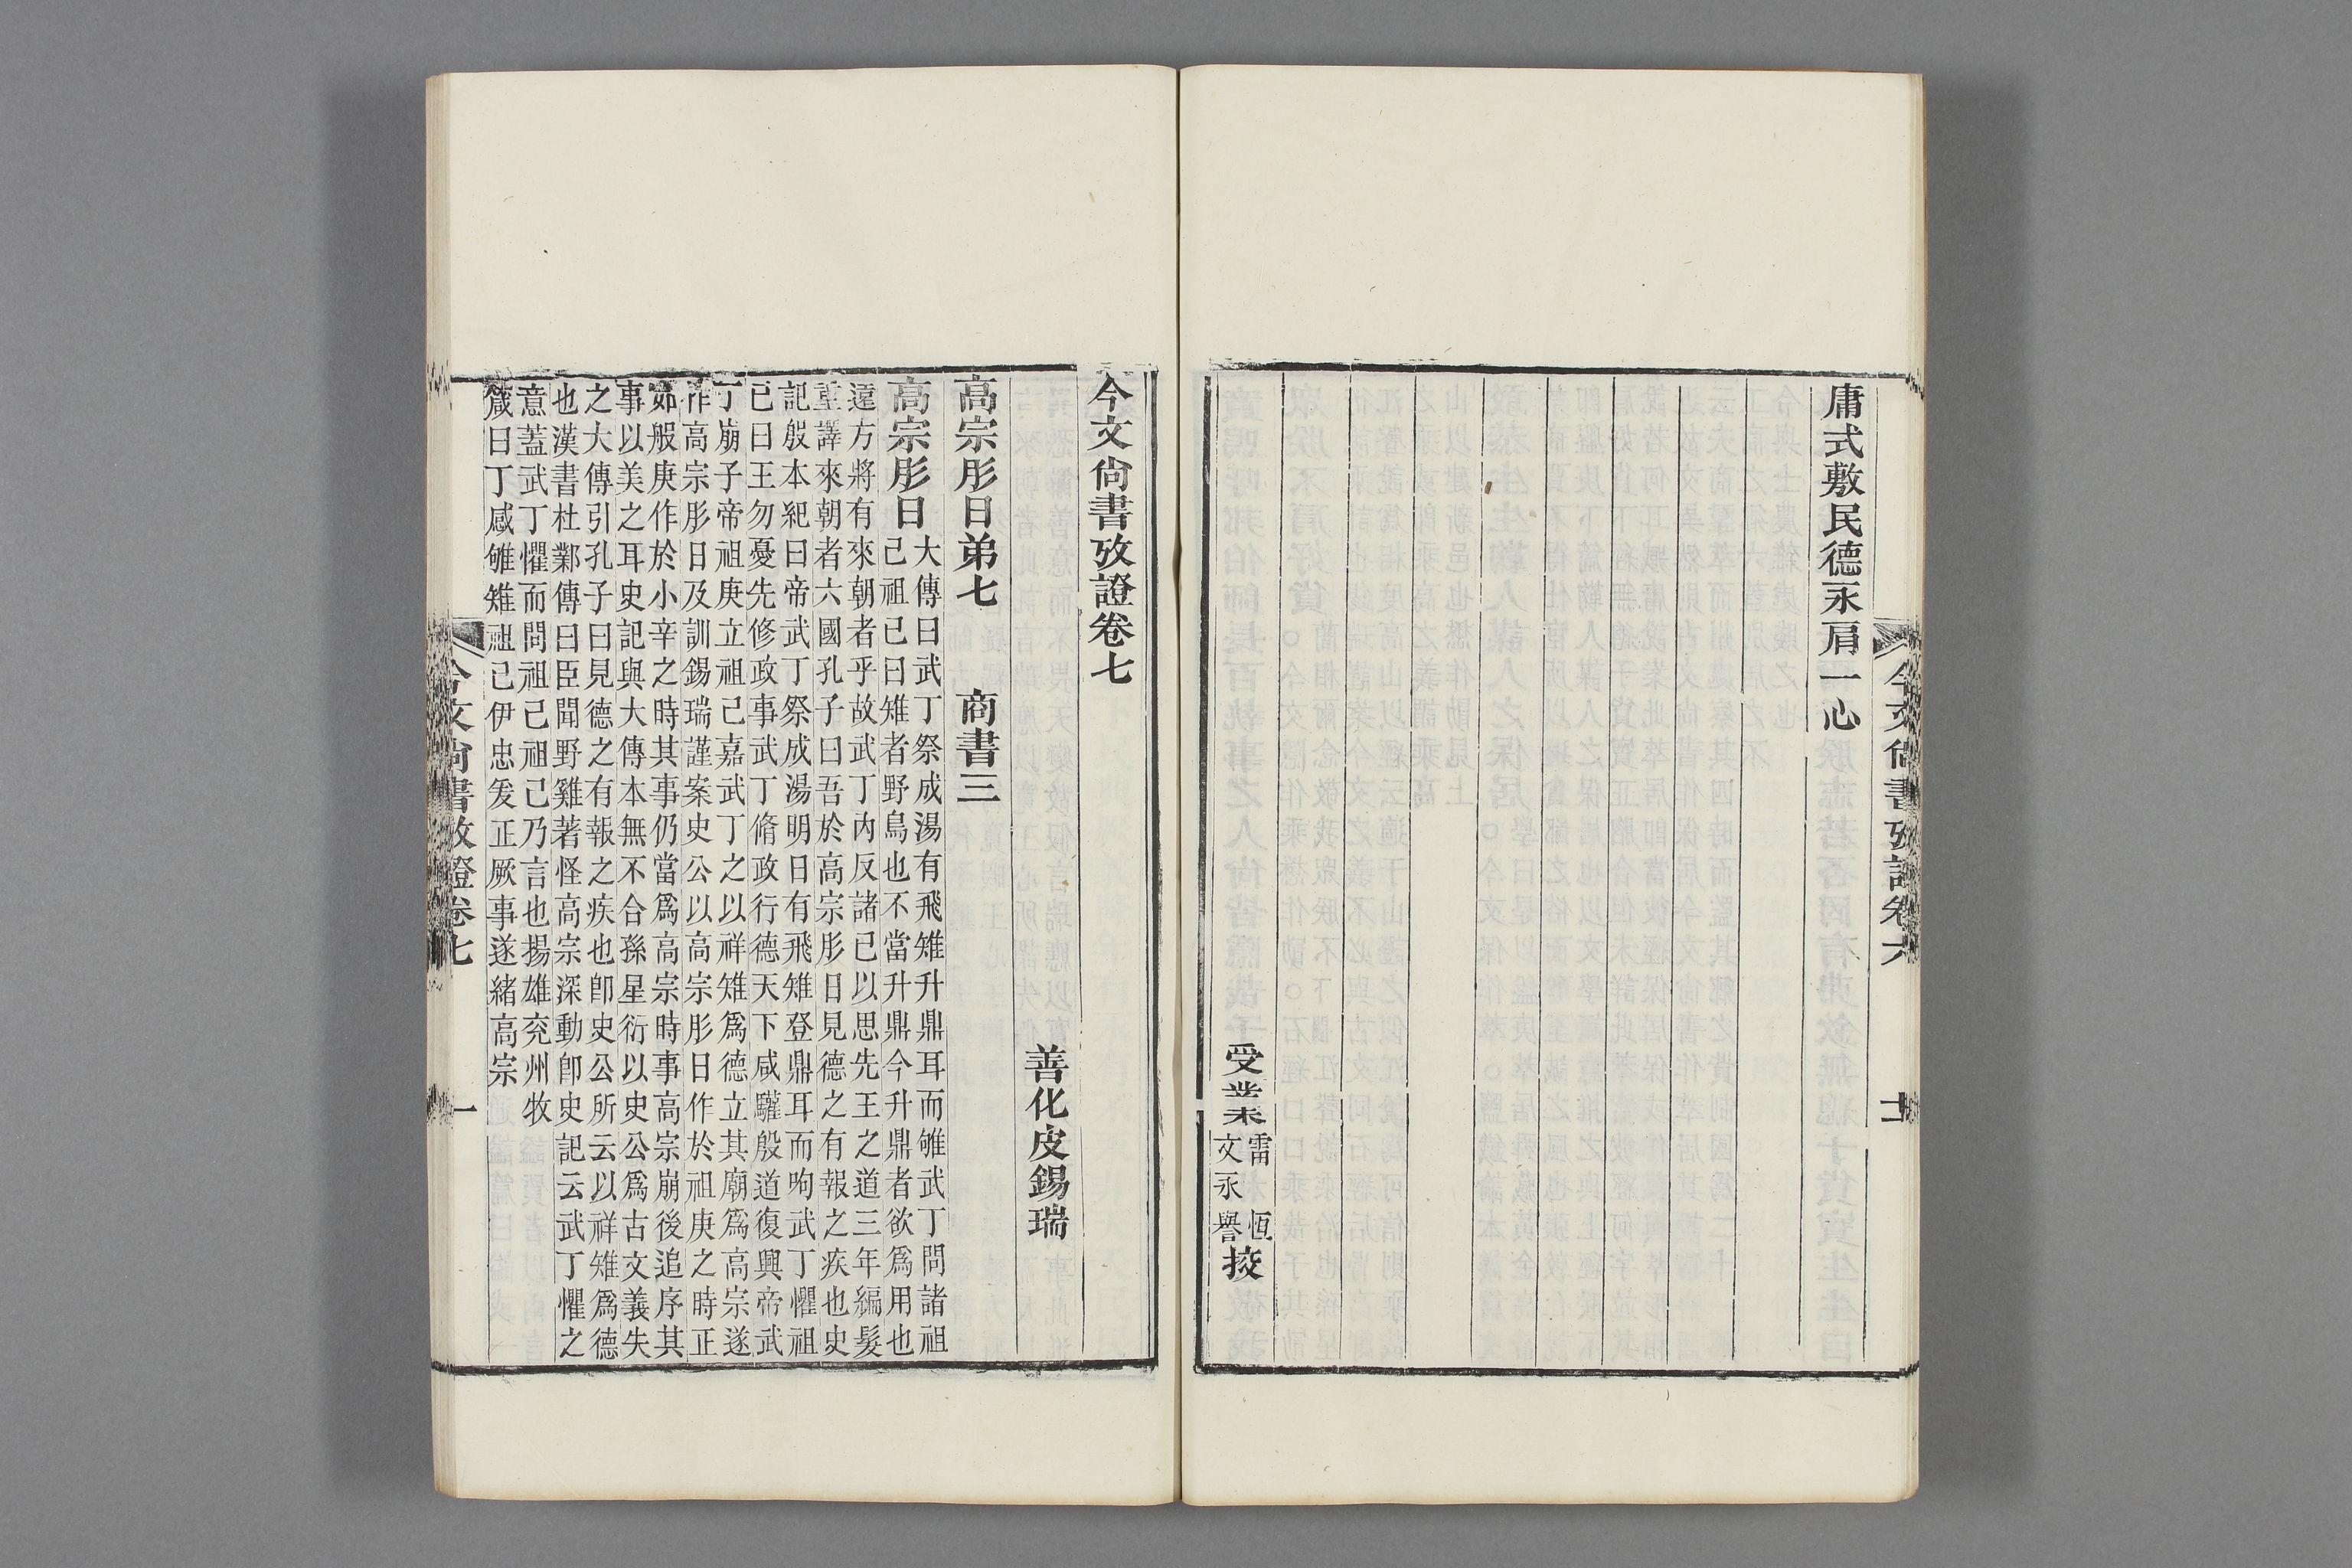 庸式敷民德永肩一心
受業耒雷恆
文永譽挍
今文尚書攷證卷六
十一
今文尚書攷證卷七
善化皮錫瑞
高宗肜日弟七 商書三
高宗肜日
大傳曰武丁祭成湯有飛雉升鼎耳而雊武丁問諸祖
己祖己曰雉者野鳥也不當升鼎今升鼎者欲爲用也
遠方將有來朝者乎故武丁內反諸己以思先王之道三年編髮
重譯來朝者六國孔子曰吾於高宗肜日見德之有報之疾也史
記殷本紀曰帝武丁祭成湯明日有飛雉登鼎耳而呴武丁懼祖
己曰王勿憂先修政事武丁脩政行德天下咸驩殷道復興帝武
丁崩子帝祖庚立祖己嘉武丁之以祥雉爲德立其廟爲高宗遂
作高宗肜日及訓錫瑞謹案史公以高宗肜日作於祖庚之時正
如般庚作於小辛之時其事仍當爲高宗時事高宗崩後追序其
事以美之耳史記與大傳本無不合孫星衍以史公爲古文義失
之大傳引孔子曰見德之有報之疾也卽史公所云以祥雉爲德
也漢書杜鄴傳曰臣聞野雞著怪高宗深動卽史記云武丁懼之
意蓋武丁懼而問祖己祖己乃言也揚雄兗州牧
箴曰丁感雊雉祖己伊忠爰正厥事遂緒高宗
今文尚書攷證卷七
一